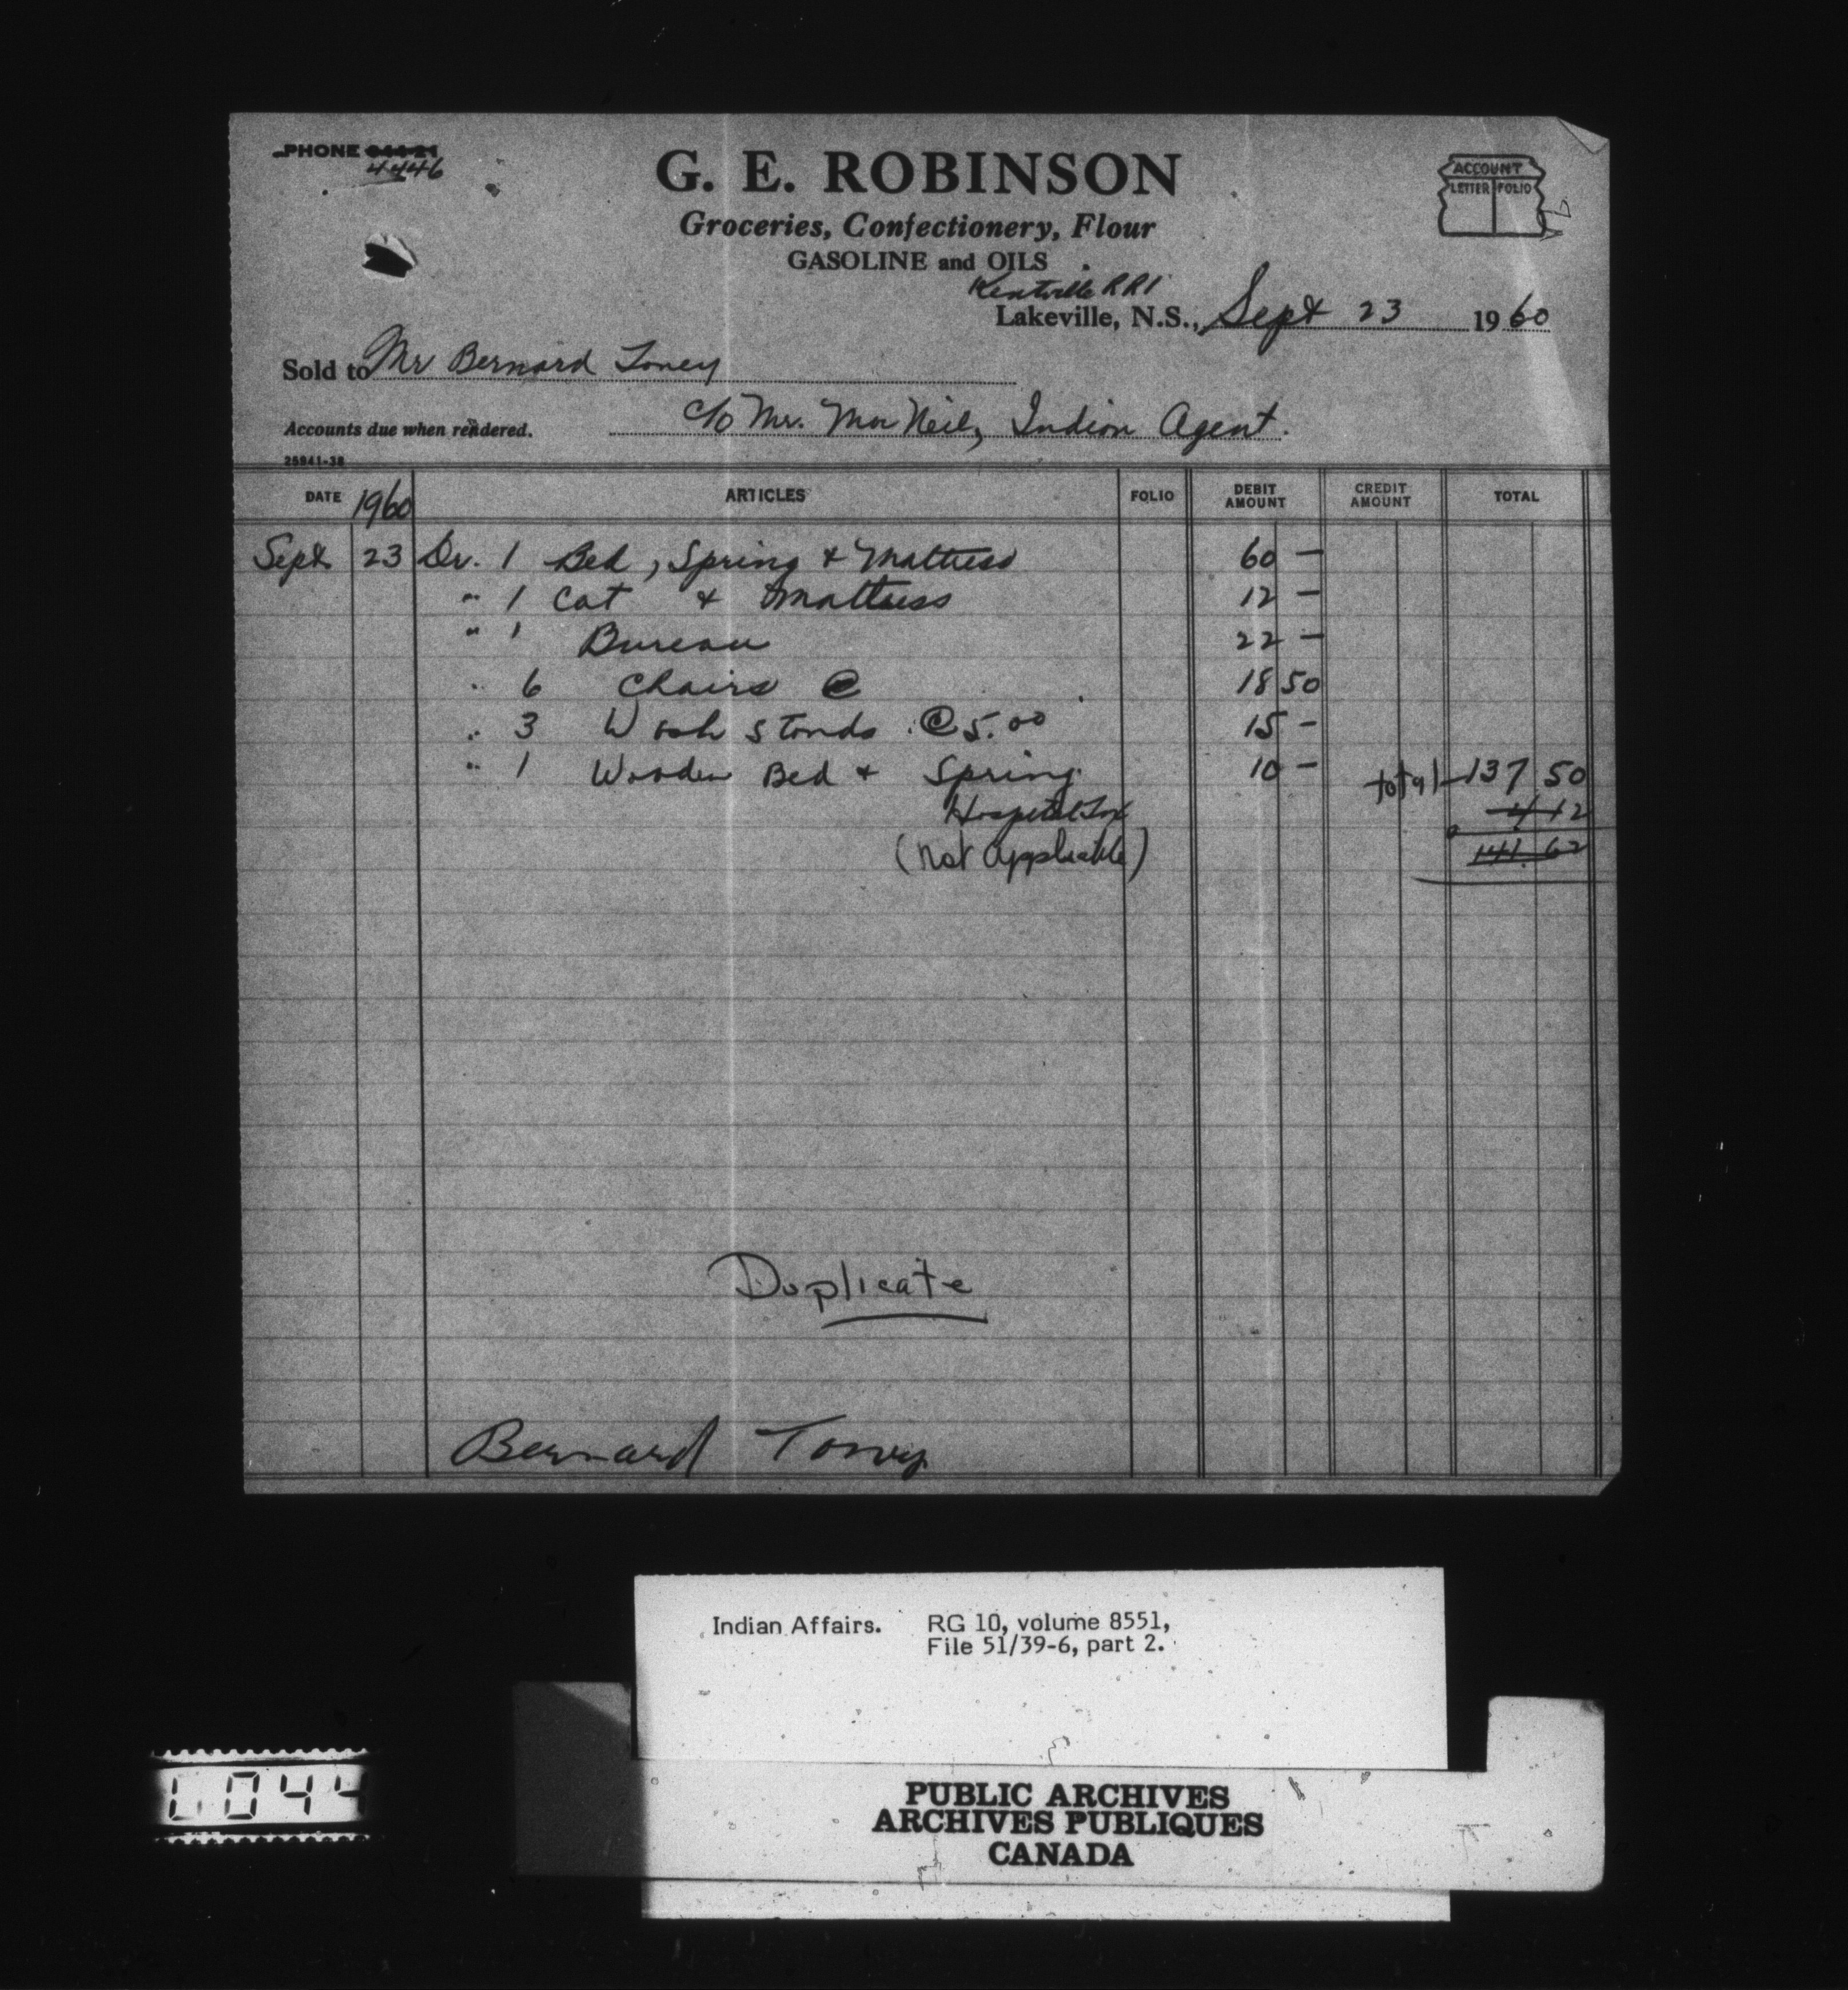 PHONE
4446
G. E. ROBINSON
Groceries, Confectionery, Flour
GASOLINE and OILS
ACCOUNT
LETTER FOLIO
Kentville RR1
Lakeville, N.S., Sept 23 1960
Sold to Mr Bernard Toney
Accounts due when rendered. c/o Mr. MacNeil, Indian Agent.
25941-38
DATE 1960 ARTICLES FOLIO DEBIT AMOUNT CREDIT AMOUNT TOTAL
Sept 23 Dr. 1 Bed, Spring & Mattress 60 —
" 1 Cot & Mattress 12 —
" 1 Bureau 22 —
" 6 Chairs @ 18 50
" 3 Wash Stands @ 5.00 15 -
" 1 Wooden Bed & Spring 10 - total 137 50
Hospital Tax 4 12
(Not Applicable) 141.62
Duplicate
Bernard Toney
Indian Affairs. RG 10, volume 8551,
File 51/39-6, part 2.
PUBLIC ARCHIVES
ARCHIVES PUBLIQUES
CANADA
044